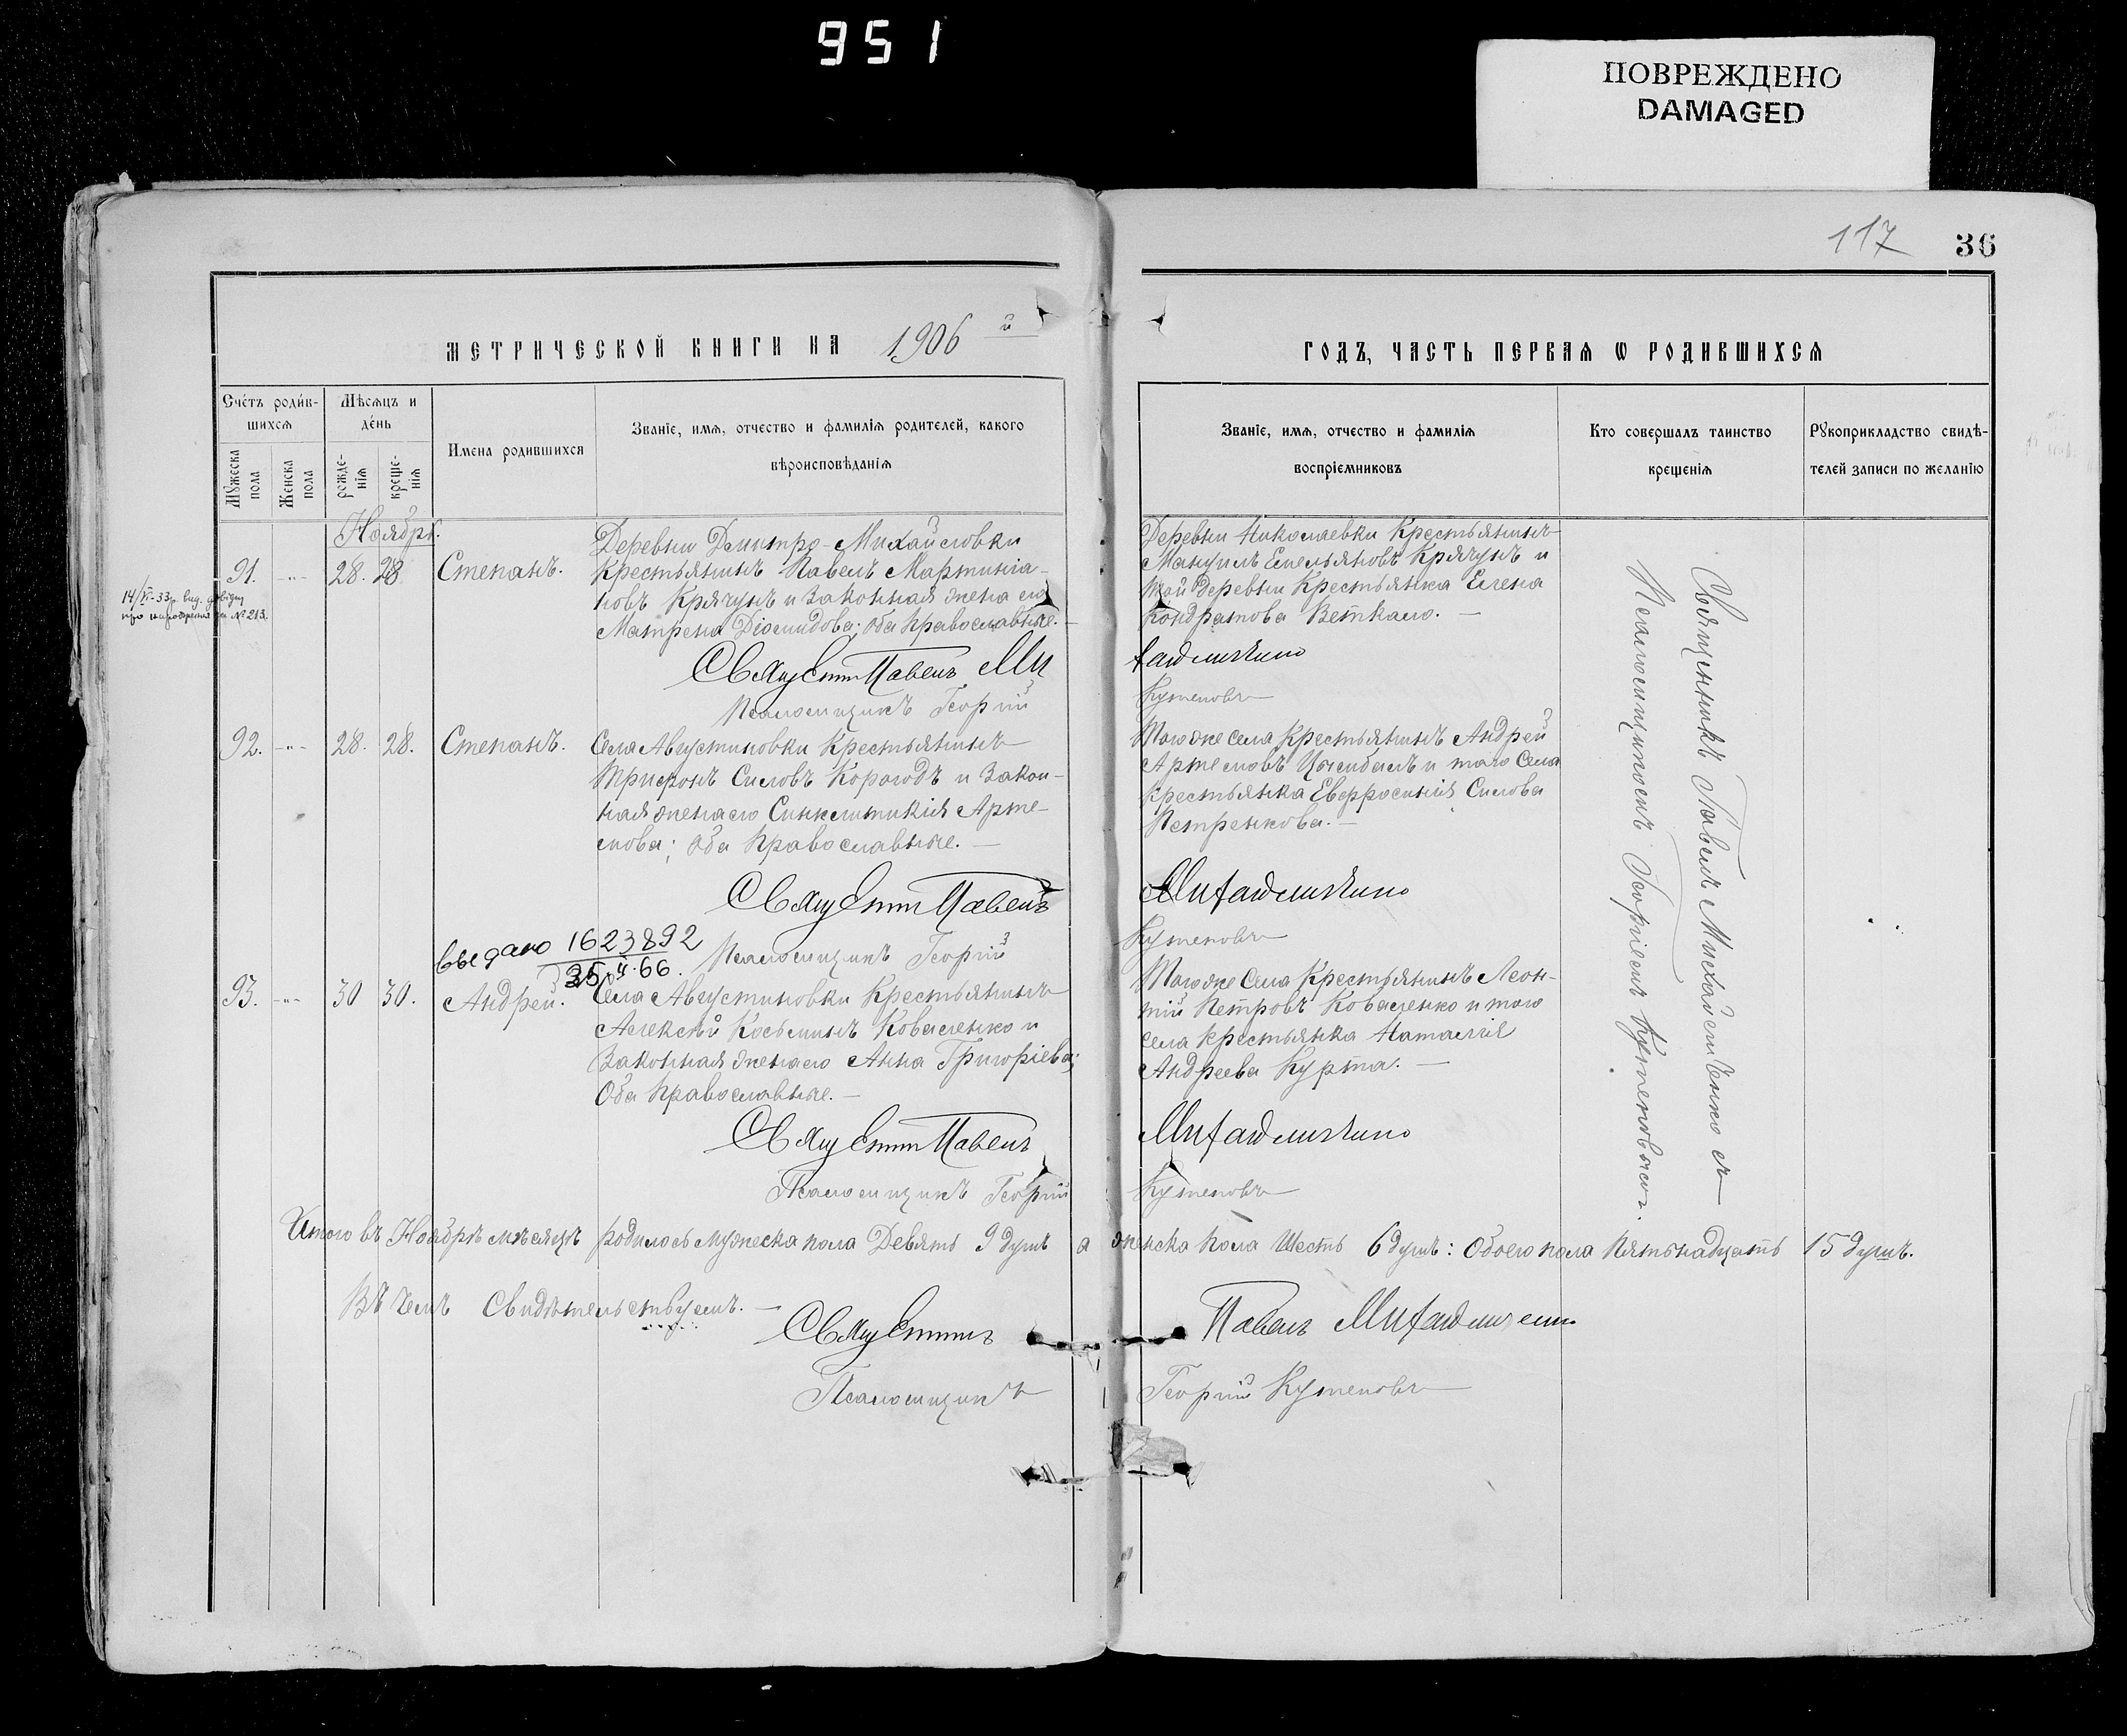 951
ПОВРЕЖДЕНО
DAMAGED
117
36
МЕТРИЧЕСКОЙ КНИГИ НА 1906 й
ГОДЪ, ЧАСТЬ ПЕРВАЯ Ѡ РОДИВШИХСЯ
Счётъ родившихся
Мѣсяцъ и день
Имена родившихся
Званіе, имя, отчество и фамилія родителей, какого вѣроисповѣданія
Мужеска пола
Женска пола
рожденія
крещенія
Званіе, имя, отчество и фамилія воспріемниковъ
Кто совершалъ таинство крещенія
Рукоприкладство свидѣтелей записи по желанію
Ноябрь.
91. -"- 28. 28. Степанъ.
Деревни Дмитро-Михайловки
Крестьянинъ Павелъ Мартиніа-
новъ Крячунъ и законная жена его
Матрена Діомидова; оба Православные.
Деревни Николаевки Крестьянинъ
Мануилъ Емельяновъ Крячунъ и
той деревни Крестьянка Елена
Кондратова Веткало.
14/VI-33р. вид.
№ 213.
Священникъ Павелъ Михайличенко
Псаломщикъ Георгій Кутеповъ
92. -"- 28. 28. Степанъ.
Села Августиновки Крестьянинъ
Трифонъ Силовъ Корогодъ и Закон-
ная жена его Синклитикія Арте-
мова; оба Православные.
Того же села Крестьянинъ Андрей
Артемовъ Цымбалъ и того Села
Крестьянка Евфросинія Силова
Петренкова.
Священникъ Павелъ Михайличенко
Псаломщикъ Георгій Кутеповъ
выдано 1623892
25.II.66.
93. -"- 30 30. Андрей.
Села Августиновки Крестьянинъ
Алексѣй Косьминъ Коваленко и
Законная жена его Анна Григоріева;
Оба Православные.
Того же Села Крестьянинъ Леон-
тій Петровъ Коваленко и того
села крестьянка Наталія
Андреева Курта.
Священникъ Павелъ Михайличенко
Псаломщикъ Георгій Кутеповъ
Священникъ Павелъ Михайличенко съ
Псаломщикомъ Георгіемъ Кутеповымъ.
Итого въ Ноябрѣ мѣсяцѣ родилось мужеска пола Девять 9 душъ а женска пола Шесть 6 душъ: Обоего пола Пятьнадцать 15 душъ.
Въ чемъ Свидѣтельствуемъ.
Священникъ Павелъ Михайличенко
Псаломщикъ Георгій Кутеповъ